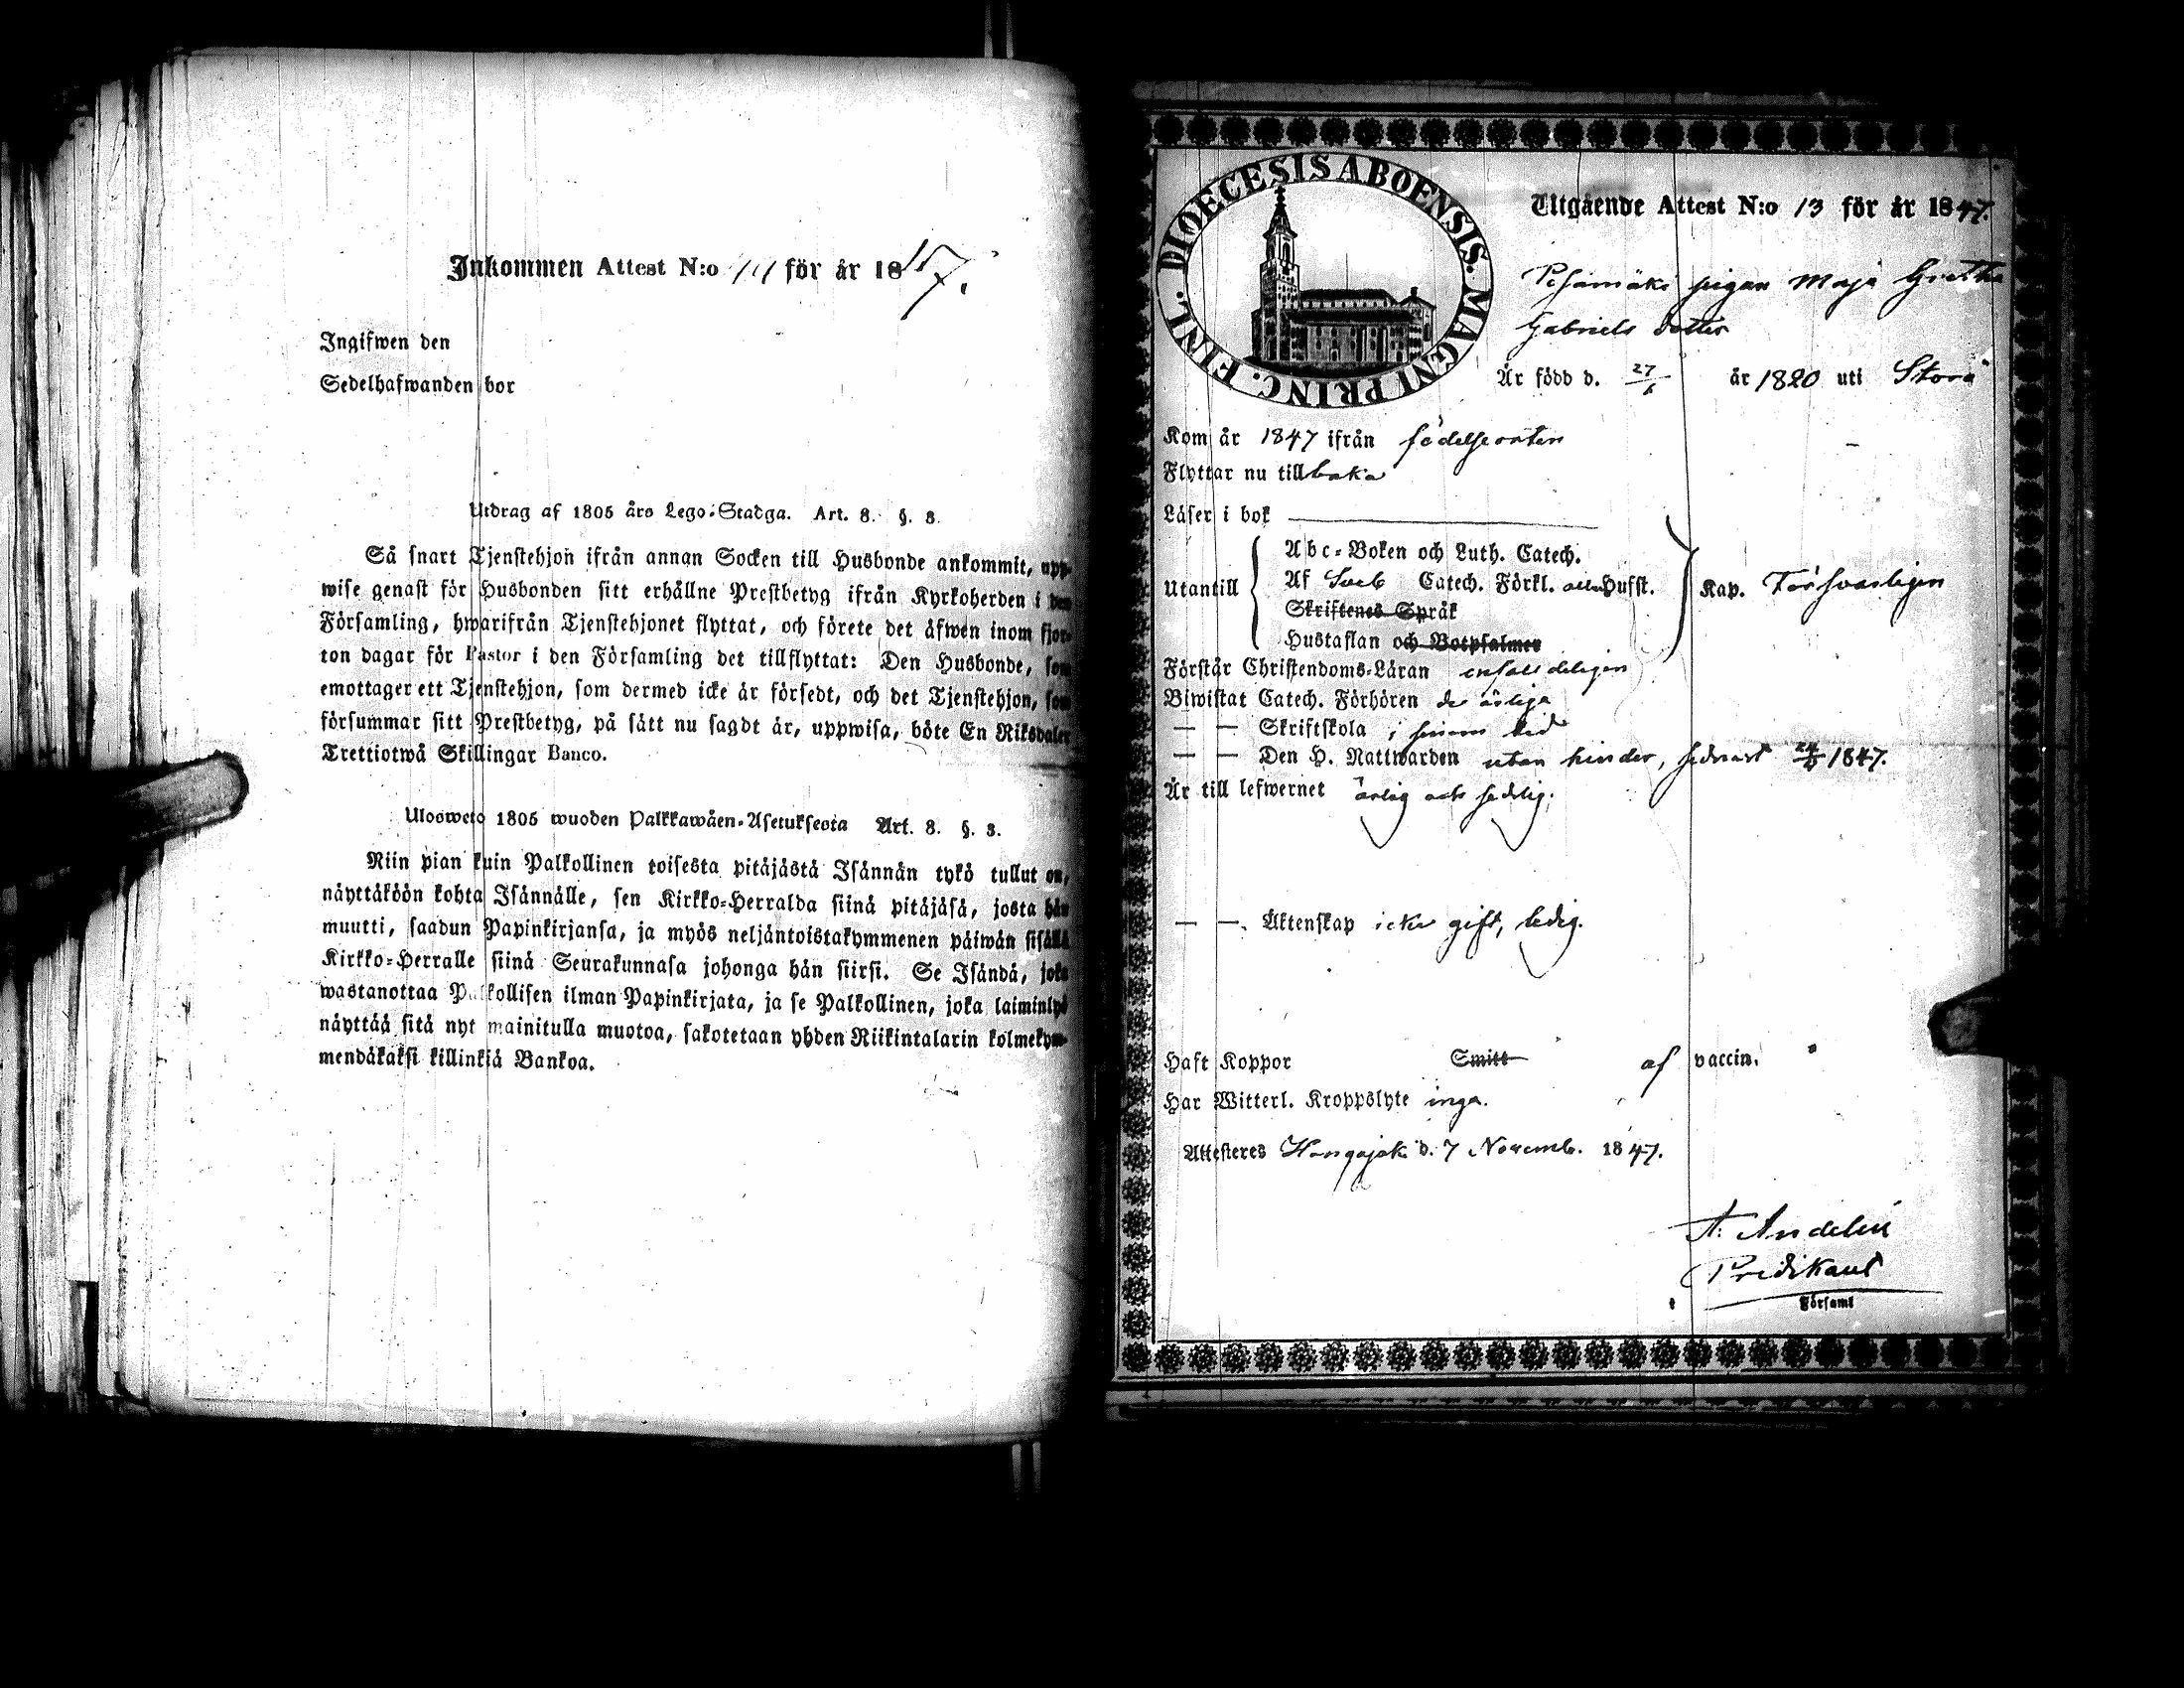 Inkommen Attest N:o för år 1847.
Ingifwen den
Sedelhafwanden bor
Utdrag af 1805 års Lego-Stadga. Art. 8. §. 8.
Så snart Tjenstehjon ifrån annan Socken till Husbonde ankommit, upp-
wise genast för Husbonden sitt erhållne Prestbetyg ifrån Kyrkoherden i den
Församling, hwarifrån Tjenstehjonet flyttat, och förete det äfwen inom fjor-
ton dagar för Pastor i den Församling det tillflyttat: Den Husbonde, som
emottager ett Tjenstehjon, som dermed icke är försedt, och det Tjenstehjon, som
försummar sitt Prestbetyg, på sätt nu sagdt är, uppwisa, böte En Riksdaler
Trettiotwå Skillingar Banco.
Ulosweto 1805 wuoden Palkkawäen-Asetuksesta Art. 8. §. 3.
Niin pian kuin Palkollinen toisesta pitäjästä Isännän tykö tullut on,
näyttäköön kohta Isännälle, sen Kirkko-Herralda siinä pitäjäsä, josta hän
muutti, saadun Papinkirjansa, ja myös neljäntoistakymmenen päiwän sisällä
Kirkko-Herralle siinä Seurakunnasa johonga hän siirsi. Se Isändä, joka
wastanottaa Palkollisen ilman Papinkirjata, ja se Palkollinen, joka laiminlyö
näyttää sitä nyt mainitulla muotoa, sakotetaan yhden Riikintalarin kolmekym-
mendäkaksi killinkiä Bankoa.
DIOECESIS ABOENSIS. MAGNI PRINC. FINL.
Utgående Attest N:o 13 för år 1847.
pigan Maja Gretha
Gabriels dotter
Är född d. 27 år 1820 uti Storå
Kom år 1847 ifrån födelseorten
Flyttar nu tillbaka
Läser i bok
Utantill
Abc-Boken och Luth. Catech.
Af Sveb Catech. Förkl. Hufst.
Skriftenes Språk
Hustaflan och Botpsalmer
Kap. Försvarligen
Förstår Christendoms-Läran enfaldeligen
Biwistat Catech. Förhören de årliga
— — Skriftskola i sinom tid
— — Den H. Nattwarden utan hinder, sednast 1847.
Är till lefwernet ärlig och sedlig.
— — Äktenskap icke gift, ledig.
Haft Koppor Smitt af vaccin.
Har Witterl. Kroppslyte inga.
Attesteres Hongojoki d. 7 Novemb. 1847.
A: Andelin
Predikant
Församl